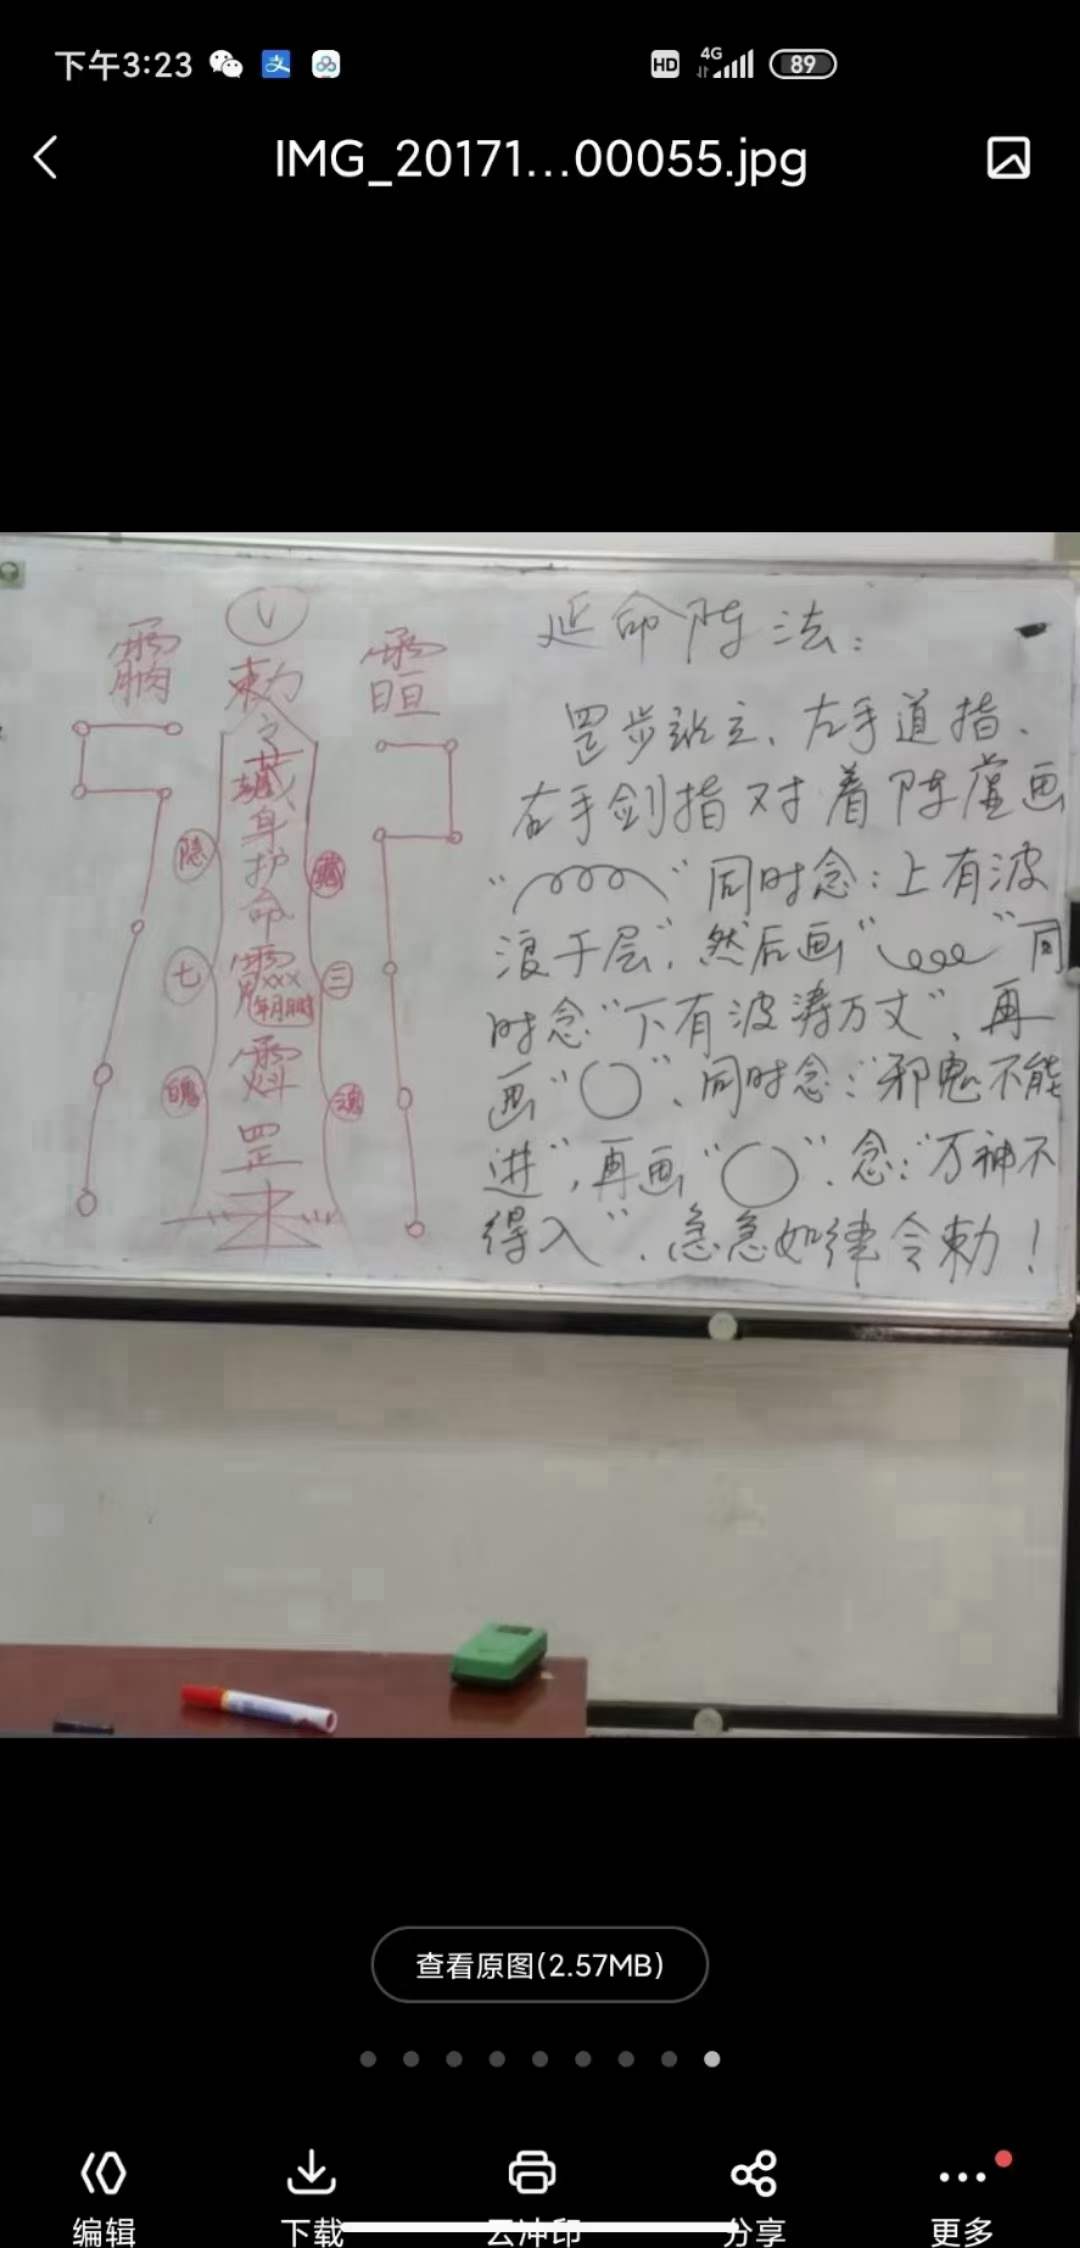 下午3:23
HD 4G 89
IMG_20171...00055.jpg
勅
令
藏
身
护
命
隐
藏
七
三
魄
魂
xxx
年月日时
罡
延命阵法：
罡步站立、左手道指、
右手剑指对着阵虚画
“ ”同时念：上有波
浪千层”，然后画“ ”同
时念“下有波涛万丈”，再
画“〇”，同时念：“邪鬼不能
进”，再画“〇”，念：“万神不
得入”，急急如律令勅！
查看原图(2.57MB)
编辑 下载 云冲印 分享 更多